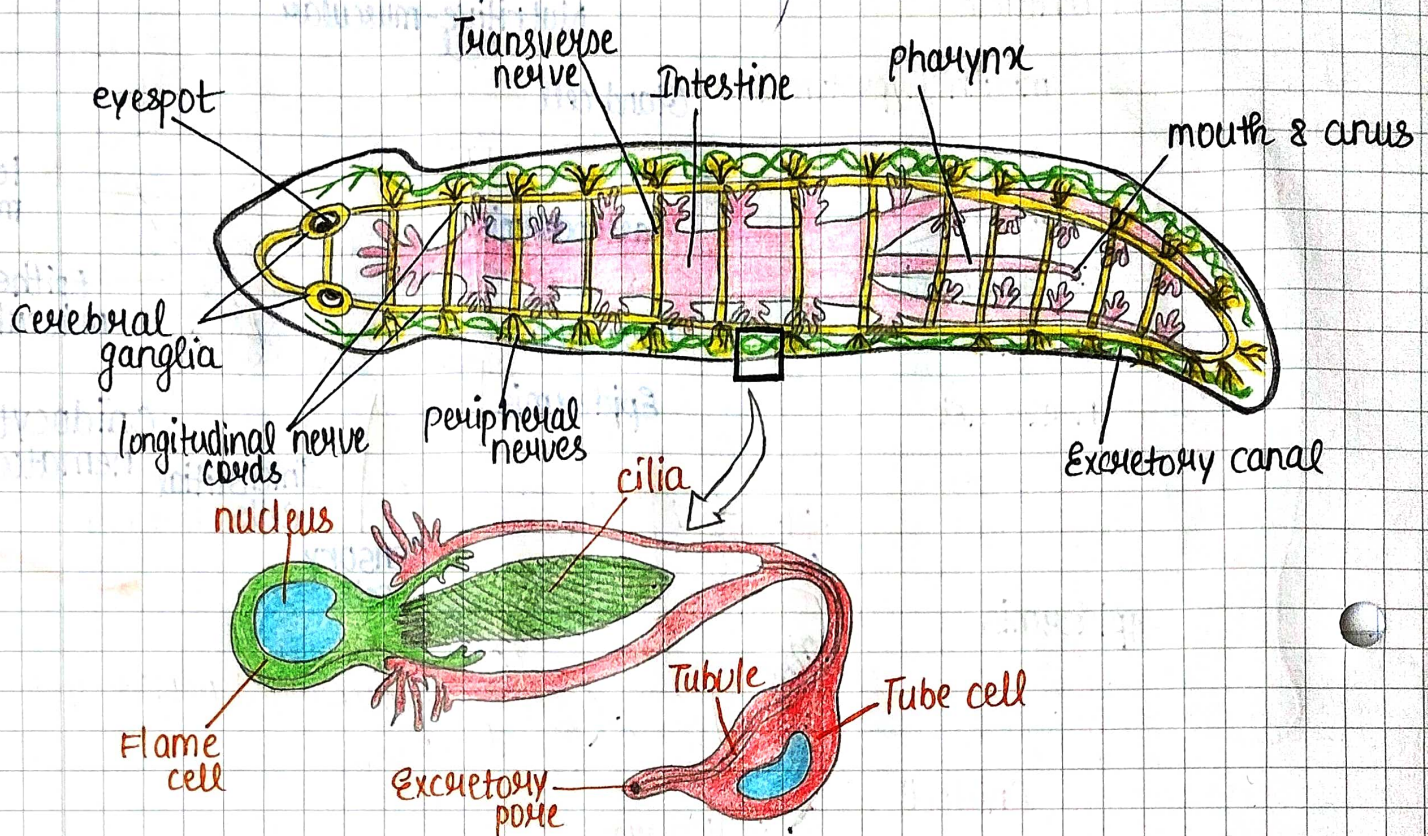 Transverse
nerve
Intestine
pharynx
eyespot
mouth & anus
Cerebral
ganglia
longitudinal nerve
cords
peripheral
nerves
Excretory canal
cilia
nucleus
Tubule
Tube cell
Flame
cell
Excretory
pore